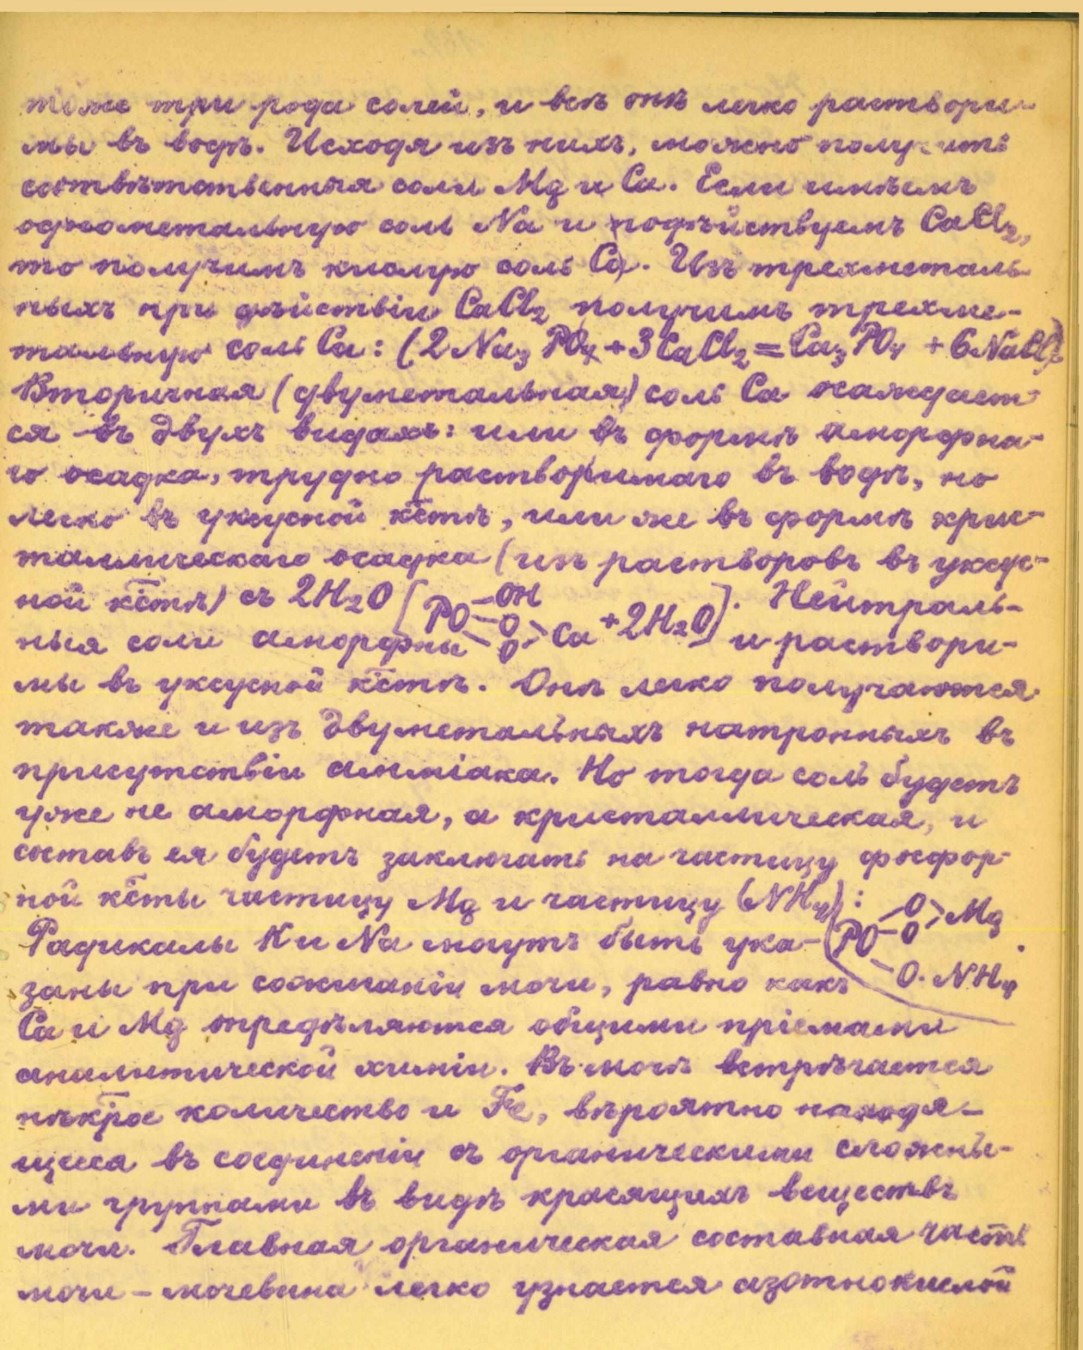 тоже три рода солей, и всѣ онѣ легко раствори-
мы въ водѣ. Исходя изъ нихъ, можно получить
соотвѣтственныя соли Mg и Ca. Если имѣемъ
однометальную соль Na и подѣйствуемъ CaCl₂,
то получимъ кислую соль Ca. Изъ трехметаль-
ныхъ при дѣйствіи CaCl₂ получимъ трехме-
тальную соль Ca: (2Na₃PO₄+3CaCl₂=Ca₃PO₄+6NaCl)
Вторичная (двуметальная) соль Ca осаждает
ся въ двухъ видахъ: или въ формѣ аморфна-
го осадка, трудно растворимаго въ водѣ, но
легко въ уксусной кстѣ, или же въ формѣ крис-
таллическаго осадка (изъ растворовъ въ уксус-
ной кстѣ) съ 2H₂O [PO-OH -O -O >Ca +2H₂O]. Нейтраль-
ныя соли аморфны и раствори-
мы въ уксусной кстѣ. Онѣ легко получаются
также и изъ двуметальныхъ натронныхъ въ
присутствіи амміака. Но тогда соль будетъ
уже не аморфная, а кристаллическая, и
составъ ея будетъ заключать на частицу фосфор-
ной ксты частицу Mg и частицу (NH₄): (PO =O -O >Mg -O.NH₄.
Радикалы K и Na могутъ быть ука-
заны при сожиганіи мочи, равно какъ
Ca и Mg опредѣляются общими пріемами
аналитической химіи. Въ мочѣ встрѣчается
нѣкрое количество и Fe, вѣроятно находя-
щееся въ соединеніи съ органическими сложны-
ми группами въ видѣ красящихъ веществъ
мочи. Главная органическая составная часть
мочи - мочевина легко узнается азотнокислой